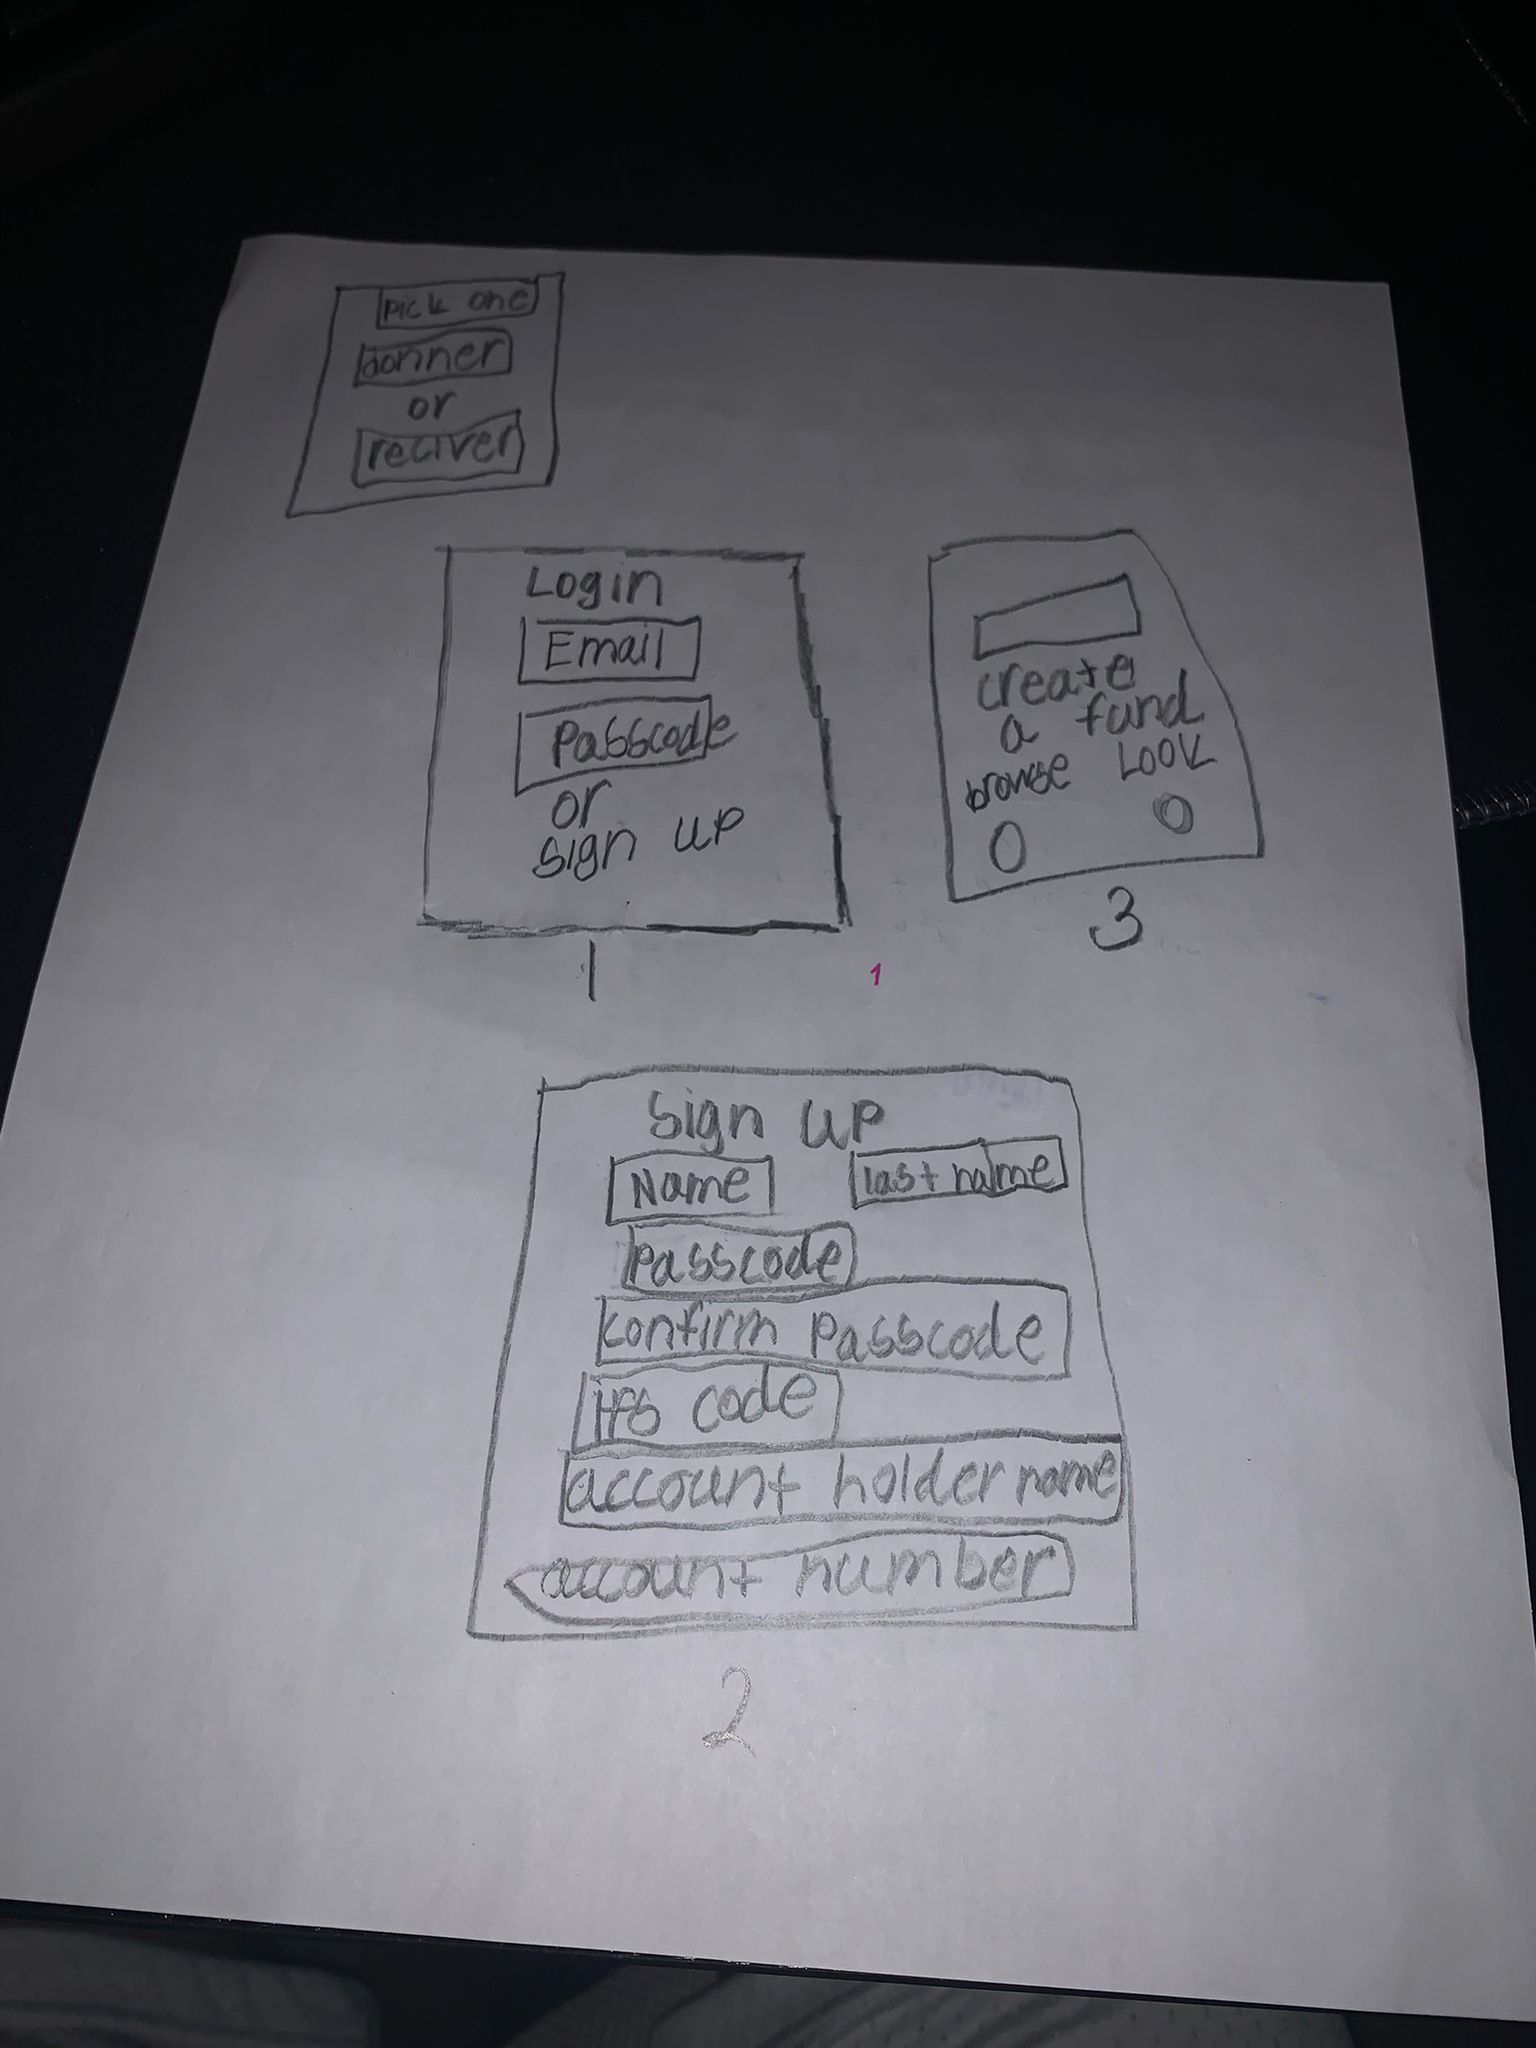 pick one
donner
or
reciver
Login
Email
Passcode
or
sign up
1
create
a fund
browse Look
3
1
Sign up
Name last name
Passcode
Konfirm passcode
code
account holder name
account number
2